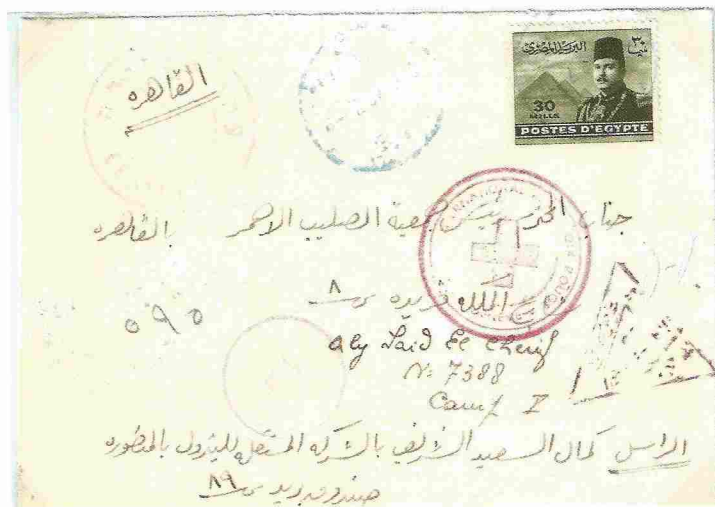 القاهره
البريد المصرى
٣٠
30
MILLS
POSTES D'EGYPTE
جناب المحترم رئيس جمعية الصليب الاحمر بالقاهره
الملكه فريده ٨
٥٩٥
Aly Said El Cherif
N: 7388
Camp I
الراسل كمال السعيد الشريف بالشركه المستقله للبترول بالمنصوره
صندوق بريد ٨٩